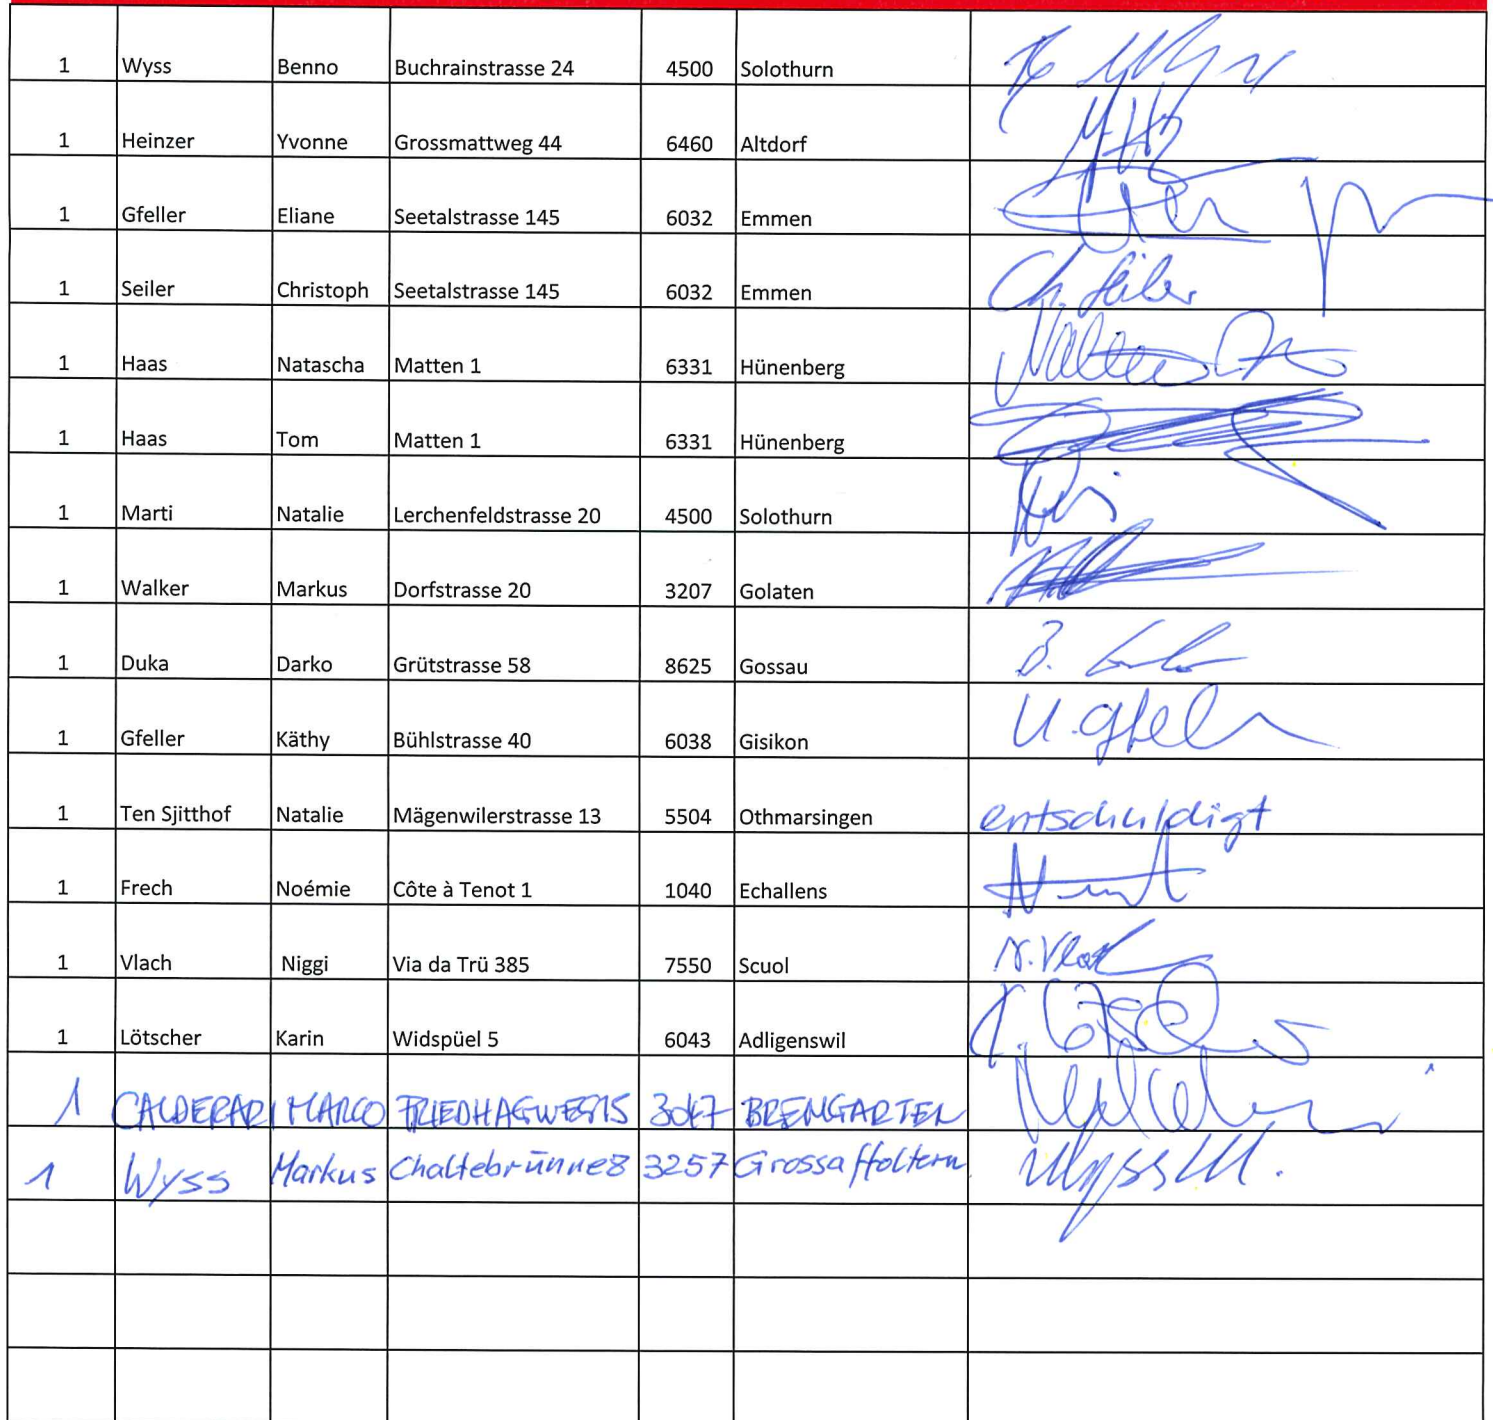 1 Wyss Benno Buchrainstrasse 24 4500 Solothurn
1 Heinzer Yvonne Grossmattweg 44 6460 Altdorf
1 Gfeller Eliane Seetalstrasse 145 6032 Emmen
1 Seiler Christoph Seetalstrasse 145 6032 Emmen Ch. Seiler
1 Haas Natascha Matten 1 6331 Hünenberg
1 Haas Tom Matten 1 6331 Hünenberg
1 Marti Natalie Lerchenfeldstrasse 20 4500 Solothurn
1 Walker Markus Dorfstrasse 20 3207 Golaten
1 Duka Darko Grütstrasse 58 8625 Gossau
1 Gfeller Käthy Bühlstrasse 40 6038 Gisikon
1 Ten Sjitthof Natalie Mägenwilerstrasse 13 5504 Othmarsingen entschuldigt
1 Frech Noémie Côte à Tenot 1 1040 Echallens
1 Vlach Niggi Via da Trü 385 7550 Scuol N. Vlach
1 Lötscher Karin Widspüel 5 6043 Adligenswil
1 CALDERARI MARCO FRIEDHAGWEG 15 3047 BREMGARTEN
1 Wyss Markus Chaltebrünne 8 3257 Grossaffoltern Wyss M.